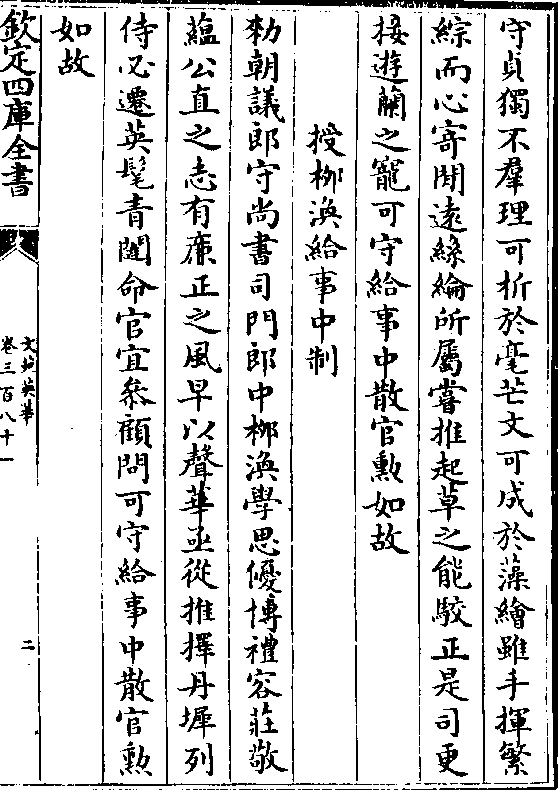 守貞獨不羣理可析於毫芒文可成於藻繪雖手揮繁
綜而心寄閒遠絲綸所屬嘗推起草之能駮正是司更
接遊蘭之寵可守給事中散官勲如故
授桞渙給事中制
勅朝議郎守尚書司門郎中桞渙學思優博禮容莊敬
蘊公直之志有㢘正之風早以聲華亟從推擇丹墀列
侍必遷英髦青閨命官宜叅顧問可守給事中散官勲
如故
欽定四庫全書
文苑英華
卷三百八十一
二